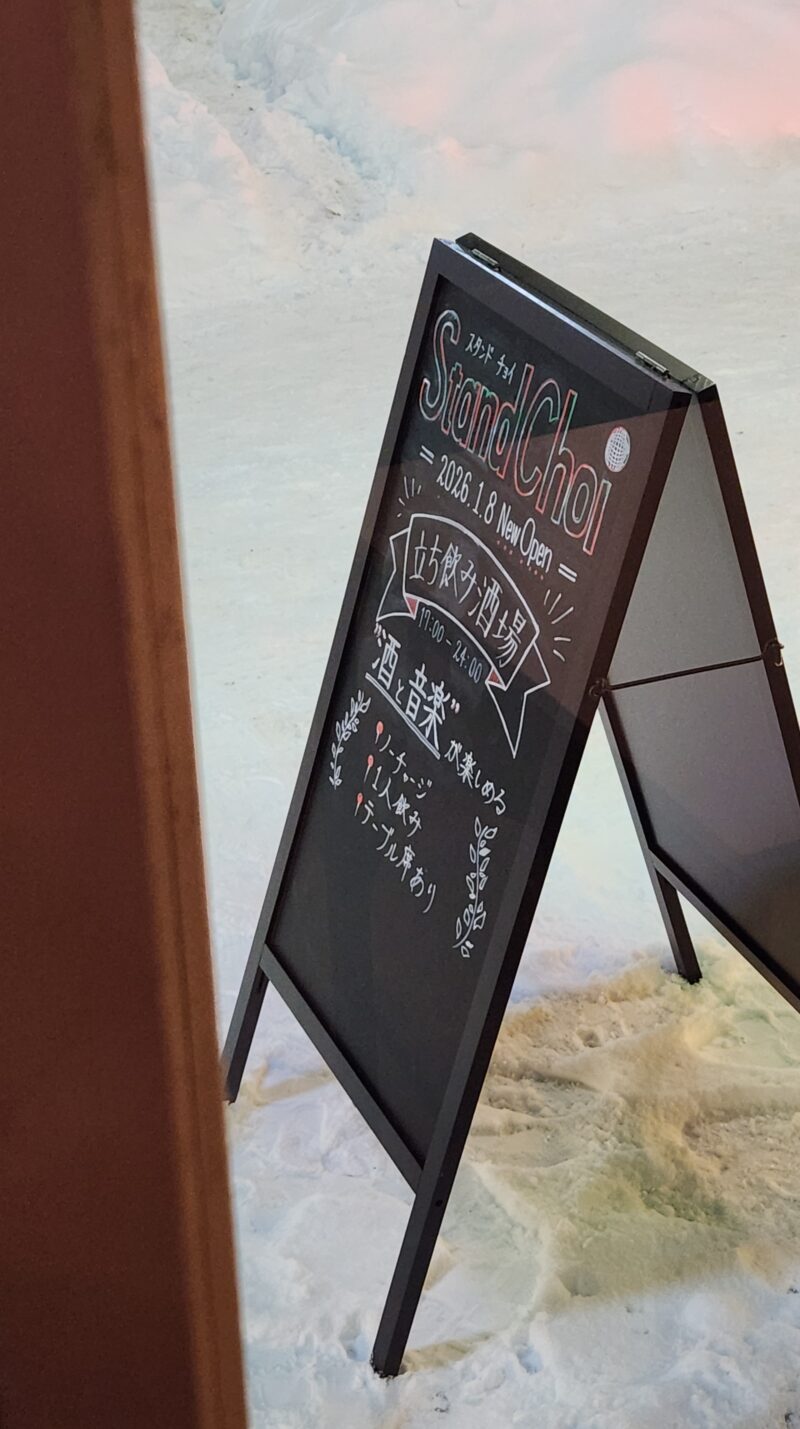 スタンド チョイ
Stand Choi
= 2026.1.8 New Open =
立ち飲み酒場
17:00-24:00
"酒と音楽"が楽しめる
ノーチャージ
1人飲み
テーブル席あり